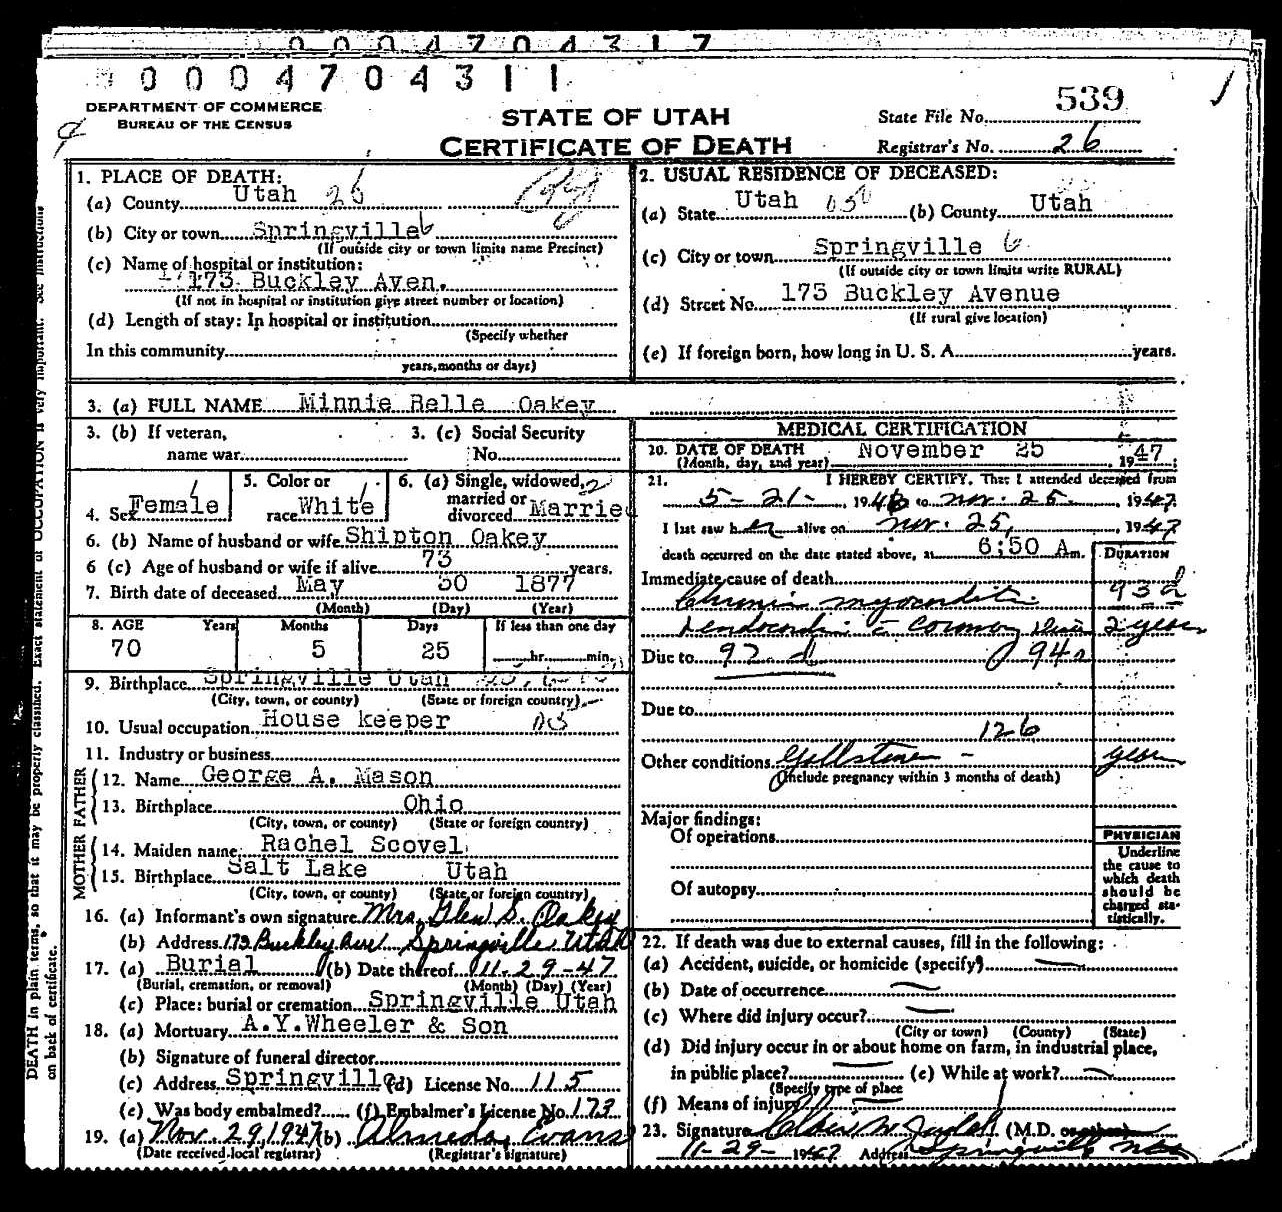 0004704317
0004704311
DEPARTMENT OF COMMERCE
BUREAU OF THE CENSUS
STATE OF UTAH
CERTIFICATE OF DEATH
State File No. 539
Registrar's No. 26
1. PLACE OF DEATH:
(a) County Utah 26
(b) City or town Springville 6
(If outside city or town limits name Precinct)
(c) Name of hospital or institution:
173 Buckley Aven.
(If not in hospital or institution give street number or location)
(d) Length of stay: In hospital or institution
(Specify whether
In this community
years, months or days)
2. USUAL RESIDENCE OF DECEASED:
(a) State Utah (b) County Utah
(c) City or town Springville 6
(If outside city or town limits write RURAL)
(d) Street No. 173 Buckley Avenue
(If rural give location)
(e) If foreign born, how long in U. S. A. years.
3. (a) FULL NAME Minnie Belle Oakey
3. (b) If veteran, 3. (c) Social Security
name war No.
4. Sex Female 5. Color or race White 6. (a) Single, widowed, married or divorced Married
6. (b) Name of husband or wife Shipton Oakey
6 (c) Age of husband or wife if alive 73 years.
7. Birth date of deceased May 30 1877
(Month) (Day) (Year)
8. AGE Years Months Days If less than one day
70 5 25 hr. min.
9. Birthplace Springville Utah
(City, town, or county) (State or foreign country)
10. Usual occupation House keeper
11. Industry or business
FATHER
12. Name George A. Mason
13. Birthplace Ohio
(City, town, or county) (State or foreign country)
MOTHER
14. Maiden name Rachel Scovel
15. Birthplace Salt Lake Utah
(City, town, or county) (State or foreign country)
16. (a) Informant's own signature Mrs. Glen S. Oakey
(b) Address 173 Buckley Ave Springville Utah
17. (a) Burial (b) Date thereof 11-29-47
(Burial, cremation, or removal) (Month) (Day) (Year)
(c) Place: burial or cremation Springville Utah
18. (a) Mortuary A.Y.Wheeler & Son
(b) Signature of funeral director
(c) Address Springville (d) License No. 115
(e) Was body embalmed? (f) Embalmer's License No. 173
19. (a) Nov. 29, 1947 (b) Almeda Evans
(Date received local registrar) (Registrar's signature)
MEDICAL CERTIFICATION
20. DATE OF DEATH November 25
(Month, day, and year) 1947;
21. I HEREBY CERTIFY, That I attended deceased from
5-21-, 1946 to Nov. 25, 1947
I last saw her alive on Nov. 25, 1947
death occurred on the date stated above, at 6:50 Am. DURATION
Immediate cause of death
Chronic myocarditis 93d
& endocarditis c̄ coronary 2 years
Due to 97 94a
Due to
126
Other conditions Gallstones - years
(Include pregnancy within 3 months of death)
Major findings:
Of operations
Of autopsy
PHYSICIAN
Underline
the cause to
which death
should be
charged sta-
tistically.
22. If death was due to external causes, fill in the following:
(a) Accident, suicide, or homicide (specify)
(b) Date of occurrence
(c) Where did injury occur?
(City or town) (County) (State)
(d) Did injury occur in or about home on farm, in industrial place,
in public place? (e) While at work?
(Specify type of place
(f) Means of injury
23. Signature (M.D. or other)
11-29-1947 Address Springville
DEATH in plain terms, so that it may be properly classified. Exact statement of OCCUPATION is very important. See instructions
on back of certificate.